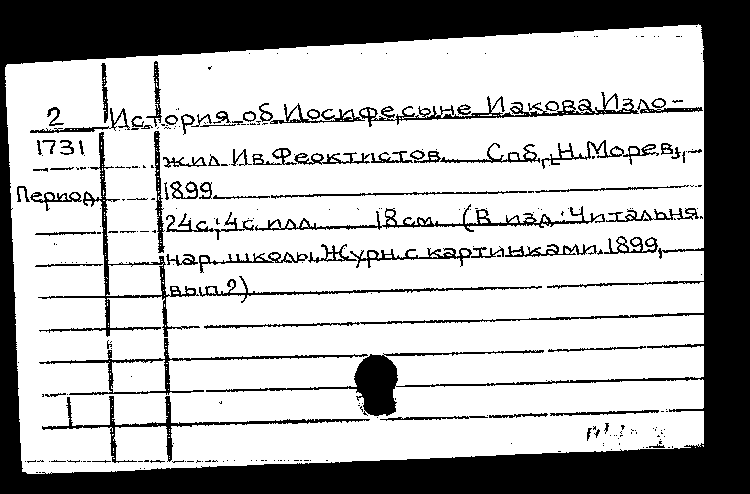 2 История об Иосифе, сыне Иакова. Изло-
1731 жил Ив. Феоктистов. Спб., Н. Морев,
Период. 1899.
24 с.; 4 с. илл. 18 см. (В изд.: Читальня
нар. школы. Журн. с картинками. 1899,
вып. 2).